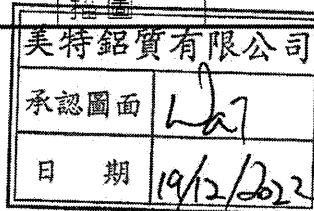 美特鋁質有限公司
承認圖面
日 期 19/12/2022